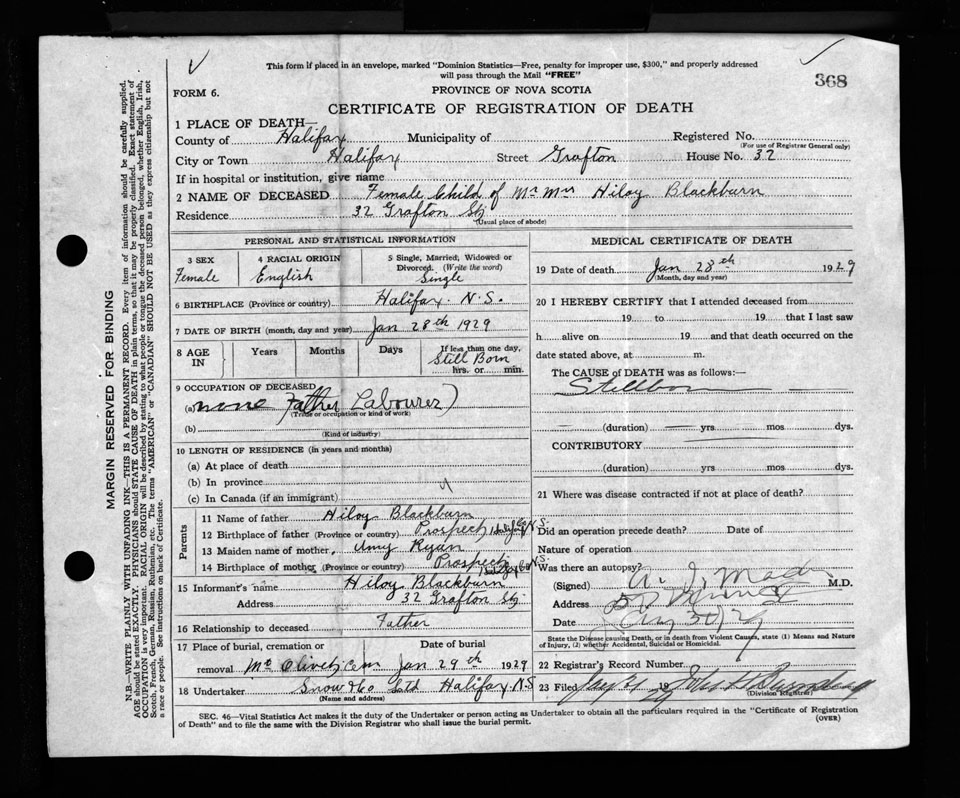 This form if placed in an envelope, marked "Dominion Statistics—Free, penalty for improper use, $300," and properly addressed
will pass through the Mail "FREE"
368
FORM 6.
PROVINCE OF NOVA SCOTIA
CERTIFICATE OF REGISTRATION OF DEATH
1 PLACE OF DEATH—
County of Halifax Municipality of Registered No.
(For use of Registrar General only)
City or Town Halifax Street Grafton House No. 32
If in hospital or institution, give name
2 NAME OF DECEASED Female Child of Mr Mrs Hiloy Blackburn
Residence 32 Grafton St
(Usual place of abode)
PERSONAL AND STATISTICAL INFORMATION
3 SEX 4 RACIAL ORIGIN 5 Single, Married, Widowed or
Divorced. (Write the word)
Female English Single
6 BIRTHPLACE (Province or country) Halifax N.S.
7 DATE OF BIRTH (month, day and year) Jan 28th 1929
8 AGE IN Years Months Days If less than one day,
Still Born
hrs. or min.
9 OCCUPATION OF DECEASED
(a) none Father Labourer)
(Trade or occupation or kind of work)
(b)
(Kind of industry)
10 LENGTH OF RESIDENCE (in years and months)
(a) At place of death
(b) In province
(c) In Canada (if an immigrant)
Parents
11 Name of father Hiloy Blackburn
12 Birthplace of father (Province or country) Prospect Halifax Co N.S.
13 Maiden name of mother Amy Ryan
14 Birthplace of mother (Province or country) Prospect Halifax Co N.S.
15 Informant's name Hiloy Blackburn
Address 32 Grafton St
16 Relationship to deceased Father
17 Place of burial, cremation or Date of burial
removal Mt Olivet Cem Jan 29th 1929
18 Undertaker Snow & Co Ltd Halifax N.S
(Name and address)
MEDICAL CERTIFICATE OF DEATH
19 Date of death Jan 28th 1929
(Month, day and year)
20 I HEREBY CERTIFY that I attended deceased from
19 to 19 that I last saw
h alive on 19 and that death occurred on the
date stated above, at m.
The CAUSE of DEATH was as follows:—
Stillborn
(duration) yrs mos dys.
CONTRIBUTORY
(duration) yrs mos dys.
21 Where was disease contracted if not at place of death?
Did an operation precede death? Date of
Nature of operation
Was there an autopsy?
(Signed) M.D.
Address
Date
State the Disease causing Death, or in death from Violent Causes, state (1) Means and Nature
of Injury, (2) whether Accidental, Suicidal or Homicidal.
22 Registrar's Record Number
23 Filed 19
(Division Registrar)
SEC. 46—Vital Statistics Act makes it the duty of the Undertaker or person acting as Undertaker to obtain all the particulars required in the "Certificate of Registration
of Death" and to file the same with the Division Registrar who shall issue the burial permit.
(OVER)
MARGIN RESERVED FOR BINDING
N.B.—WRITE PLAINLY WITH UNFADING INK—THIS IS A PERMANENT RECORD. Every item of information should be carefully supplied.
AGE should be stated EXACTLY. PHYSICIANS should STATE CAUSE OF DEATH in plain terms, so that it may be properly classified. Exact statement of
OCCUPATION is very important. RACIAL ORIGIN will be described by stating to what people or tongue the deceased person belonged, whether English, Irish,
Scotch, French, German, Russian, Ruthenian, etc. The terms "AMERICAN" or "CANADIAN" SHOULD NOT BE USED as they express citizenship but not
a race or people. See instructions on back of Certificate.